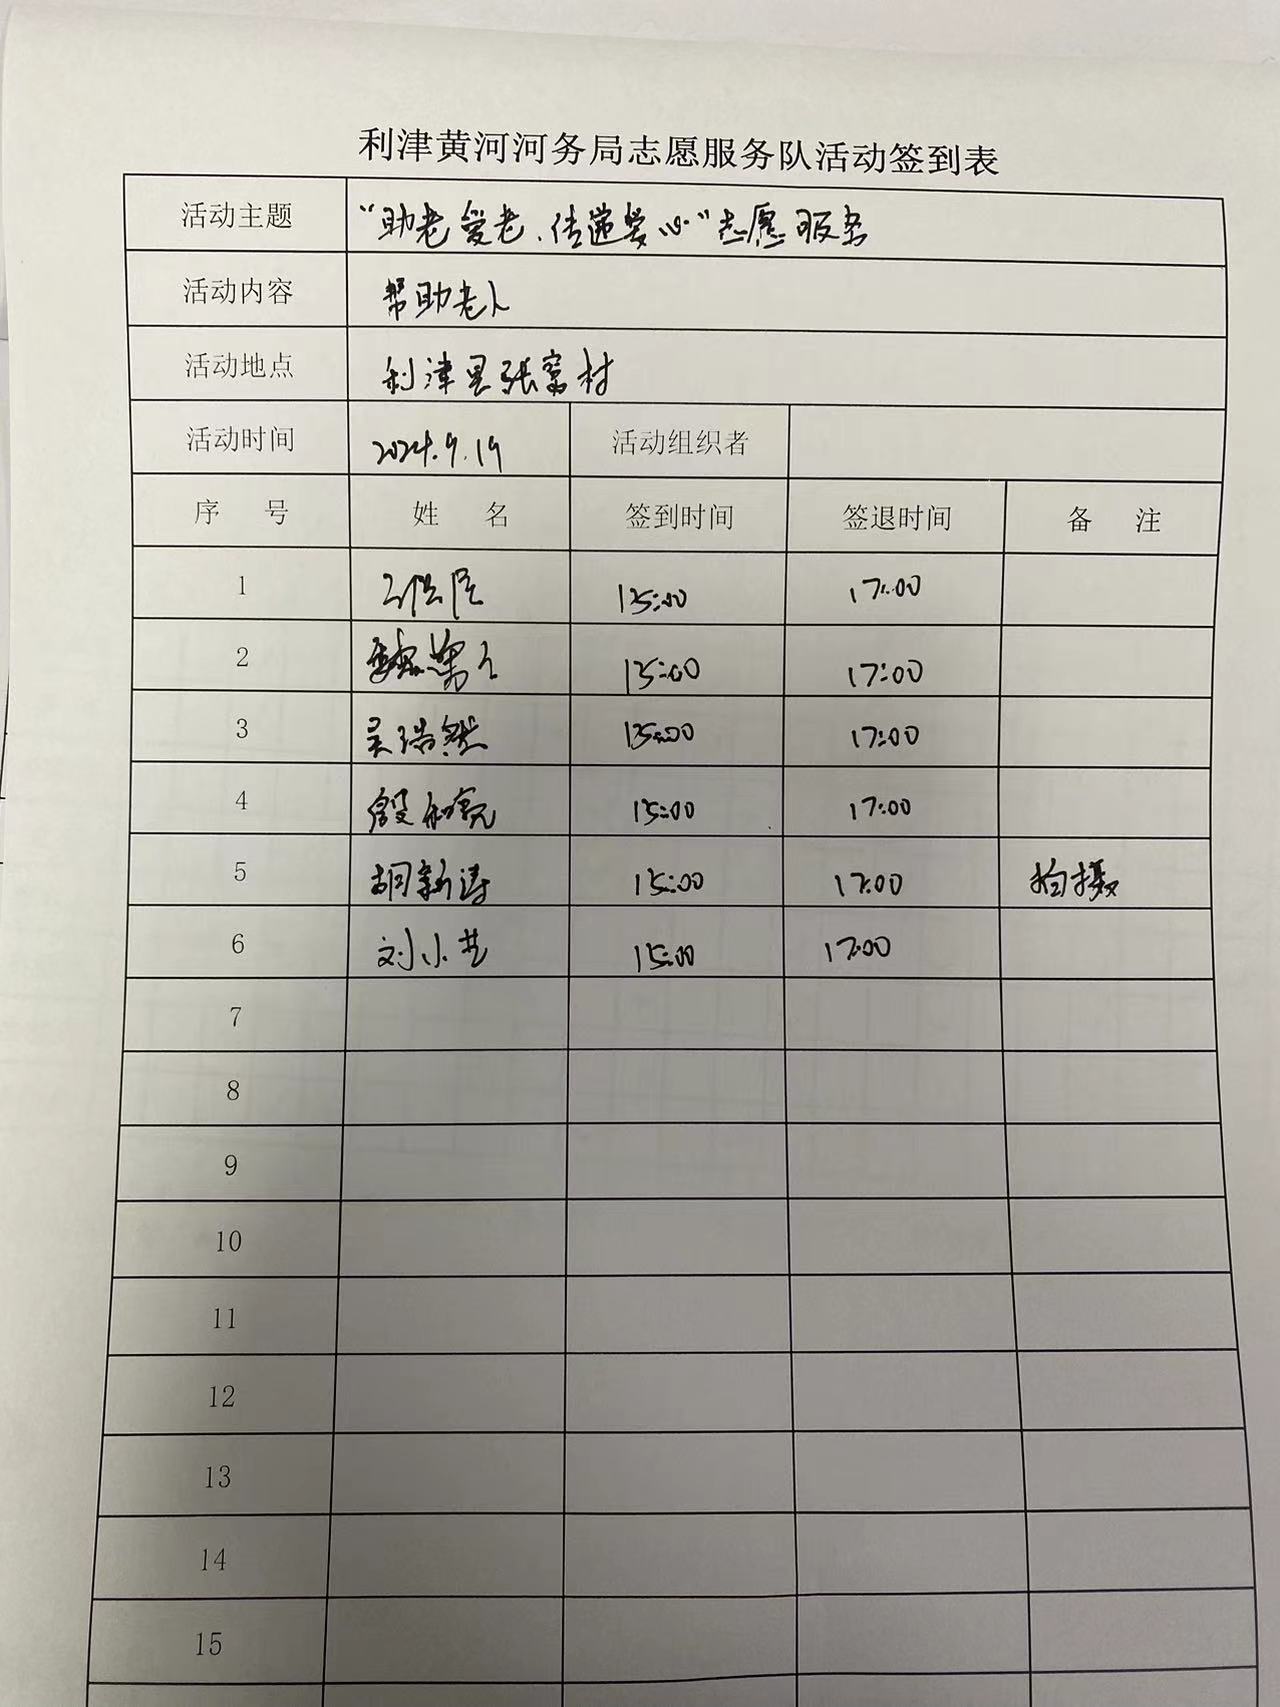 利津黄河河务局志愿服务队活动签到表
活动主题 “助老爱老、传递爱心”志愿服务
活动内容 帮助老人
活动地点 利津县张窝村
活动时间 2024.9.19 活动组织者
序 号 姓 名 签到时间 签退时间 备 注
1 15:00 17:00
2 15:00 17:00
3 吴瑞然 15:00 17:00
4 殷 15:00 17:00
5 胡新涛 15:00 17:00 拍摄
6 刘小艺 15:00 17:00
7
8
9
10
11
12
13
14
15